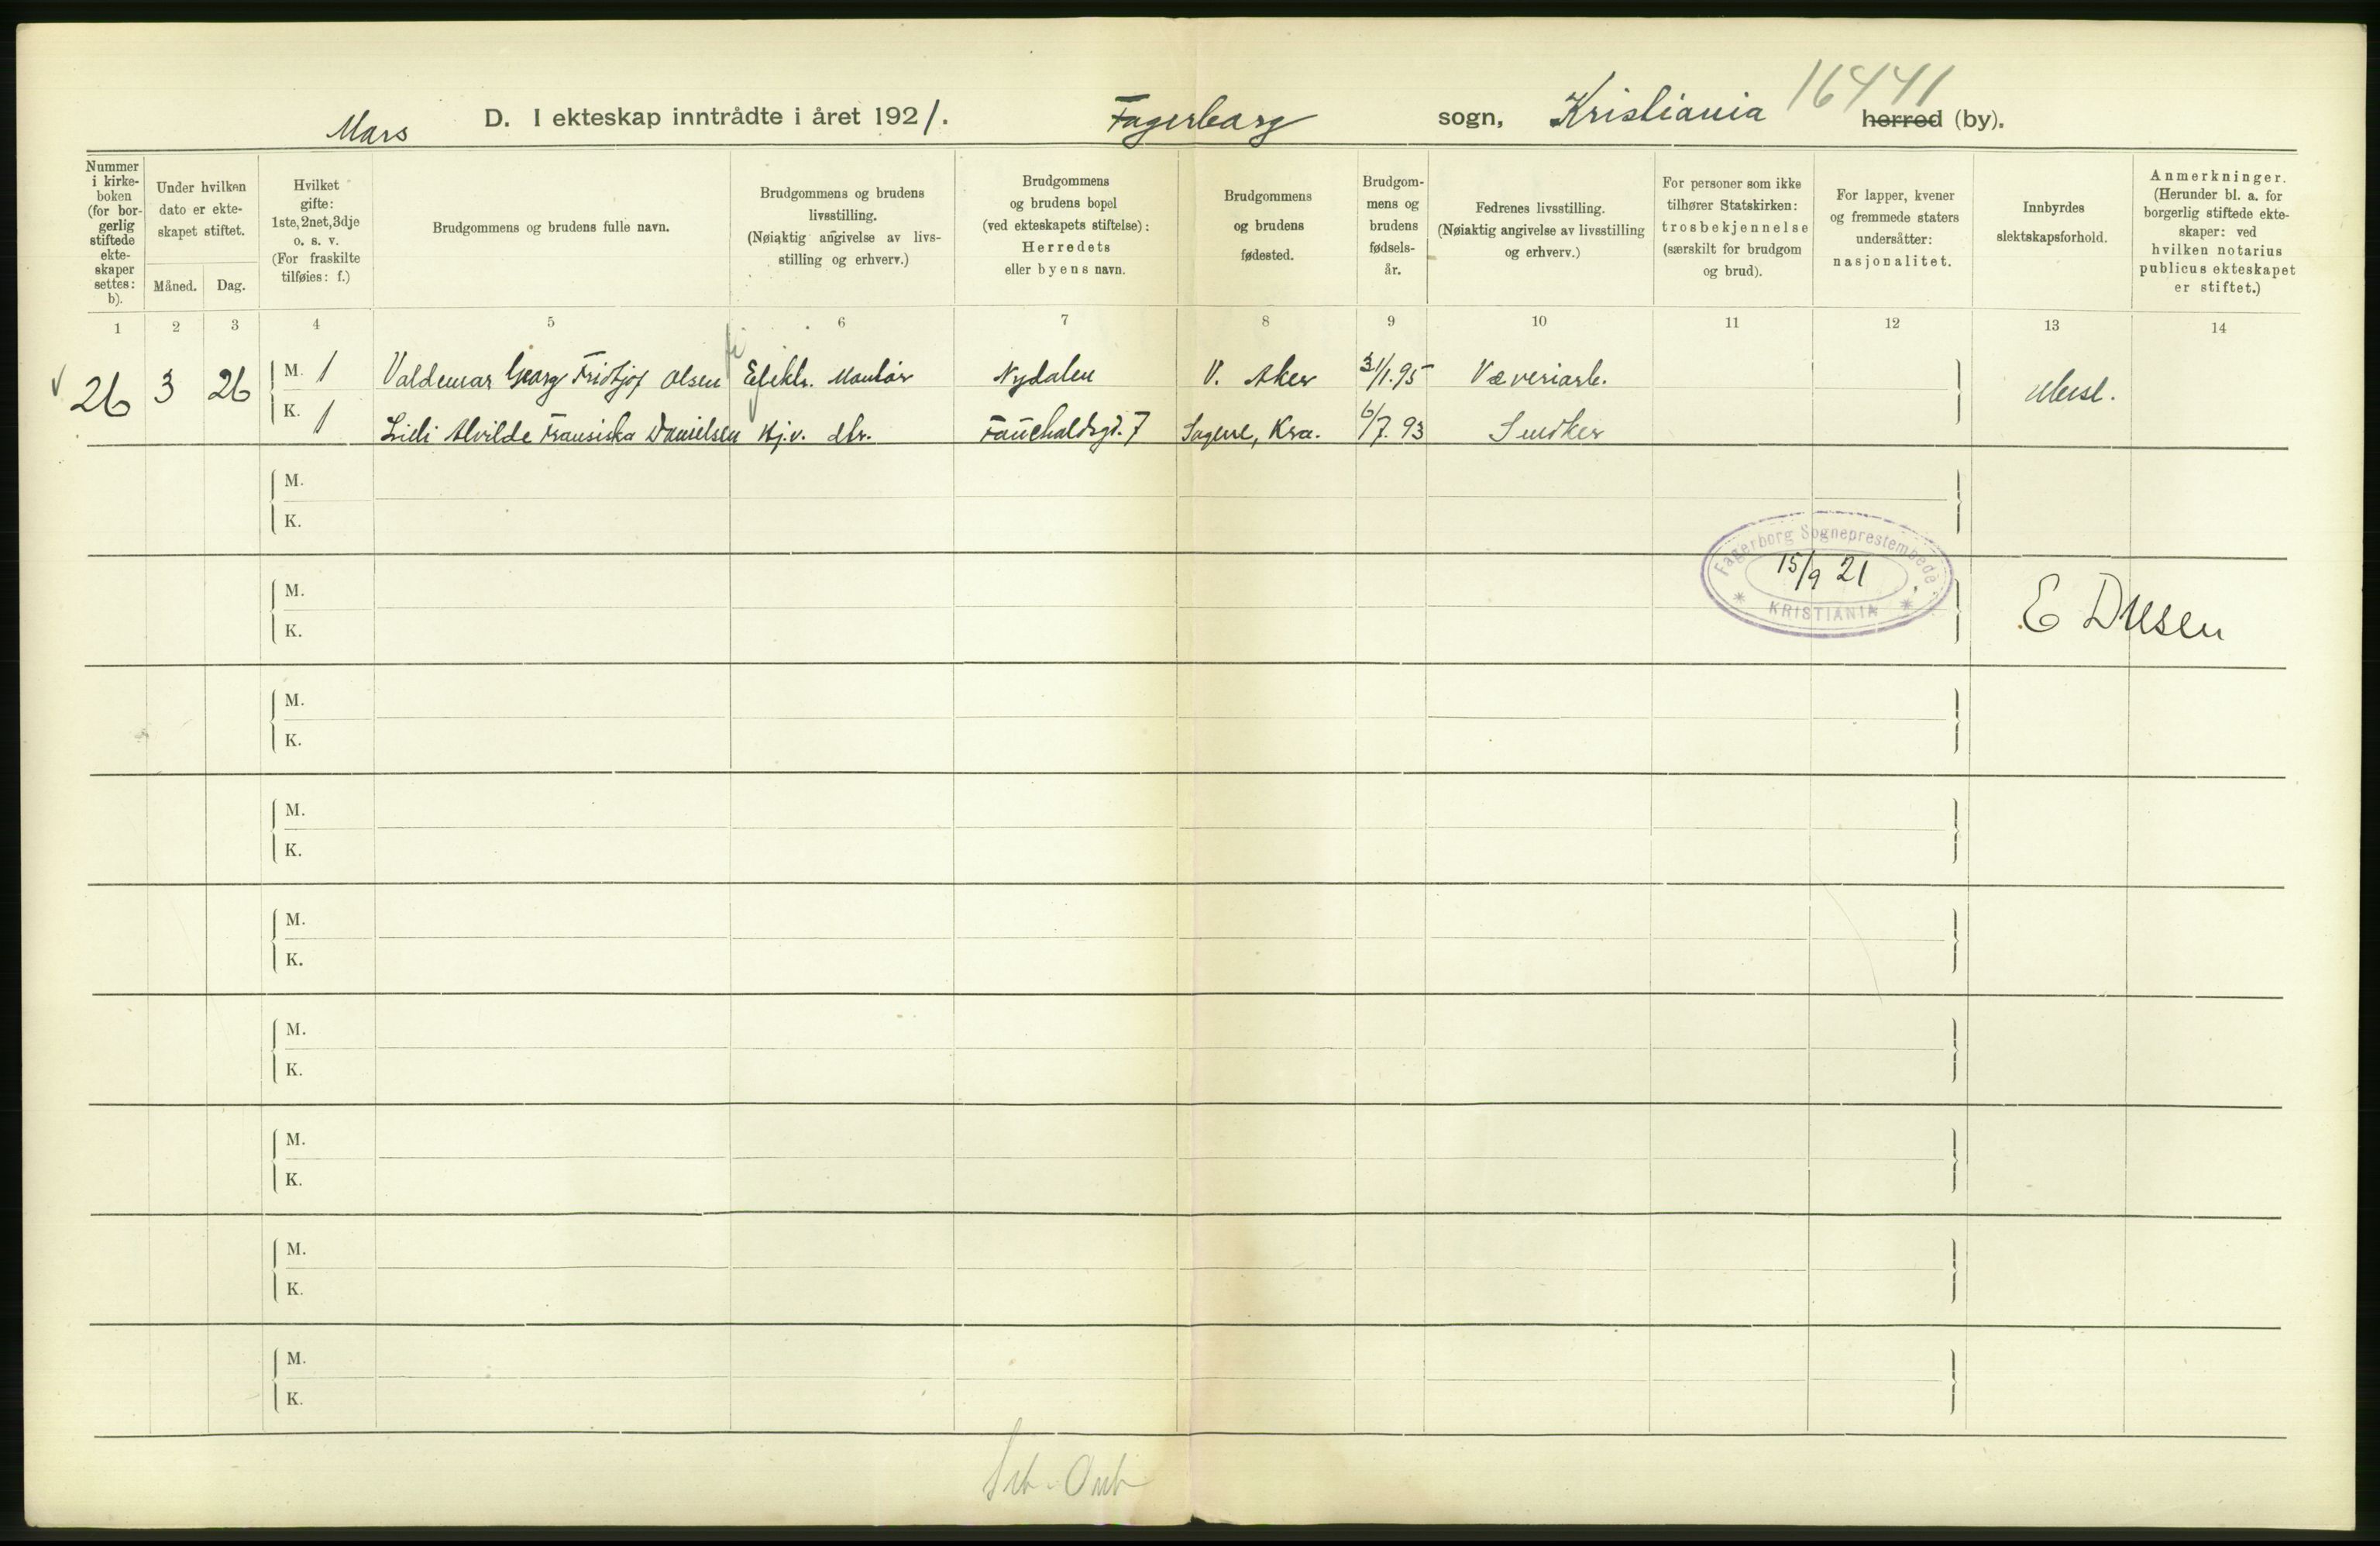 Mars D. I ekteskap inntrådte i året 1921. Fagerborg sogn, Kristiania herred (by). 16441
Nummer i kirkeboken (for borgerlig stiftede ekteskaper settes: b).
Under hvilken dato er ekteskapet stiftet.
Måned. Dag.
Hvilket gifte: 1ste, 2net, 3dje o. s. v. (For fraskilte tilføies: f.)
Brudgommens og brudens fulle navn.
Brudgommens og brudens livsstilling. (Nøiaktig angivelse av livsstilling og erhverv.)
Brudgommens og brudens bopel (ved ekteskapets stiftelse): Herredets eller byens navn.
Brudgommens og brudens fødested.
Brudgommens og brudens fødselsår.
Fedrenes livsstilling. (Nøiaktig angivelse av livsstilling og erhverv.)
For personer som ikke tilhører Statskirken: trosbekjennelse (særskilt for brudgom og brud).
For lapper, kvener og fremmede staters undersåtter: nasjonalitet.
Innbyrdes slektskapsforhold.
Anmerkninger. (Herunder bl. a. for borgerlig stiftede ekteskaper: ved hvilken notarius publicus ekteskapet er stiftet.)
1 2 3 4 5 6 7 8 9 10 11 12 13 14
26 3 26 M. 1 Valdemar Georg Fridtjof Olsen Elektr. Montør Nydalen V. Aker 31/1.95 Væveriarb. Ubesl.
K. 1 Lilli Alvilde Fransiska Danielsen Hj.v. dtr. Fauchaldsgt. 7 Sagene, Kra. 6/7.93 Snedker
M.
K.
Fagerborg Sogneprestembede
15/9 21
KRISTIANIA
M.
K.
M.
K.
M.
K.
M.
K.
M.
K.
M.
K.
M.
K.
M.
K.